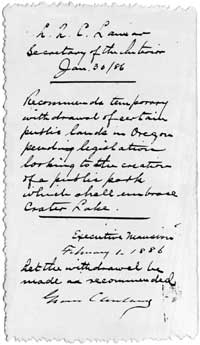 L. Q. C. Lamar
Secretary of the Interior
Jan. 30/86
Recommends temporary
withdrawal of certain
public lands in Oregon
pending legislation
looking to the creation
of a public park
which shall embrace
Crater Lake.
Executive Mansion
February 1. 1886
Let the withdrawal be
made as recommended
Grover Cleveland